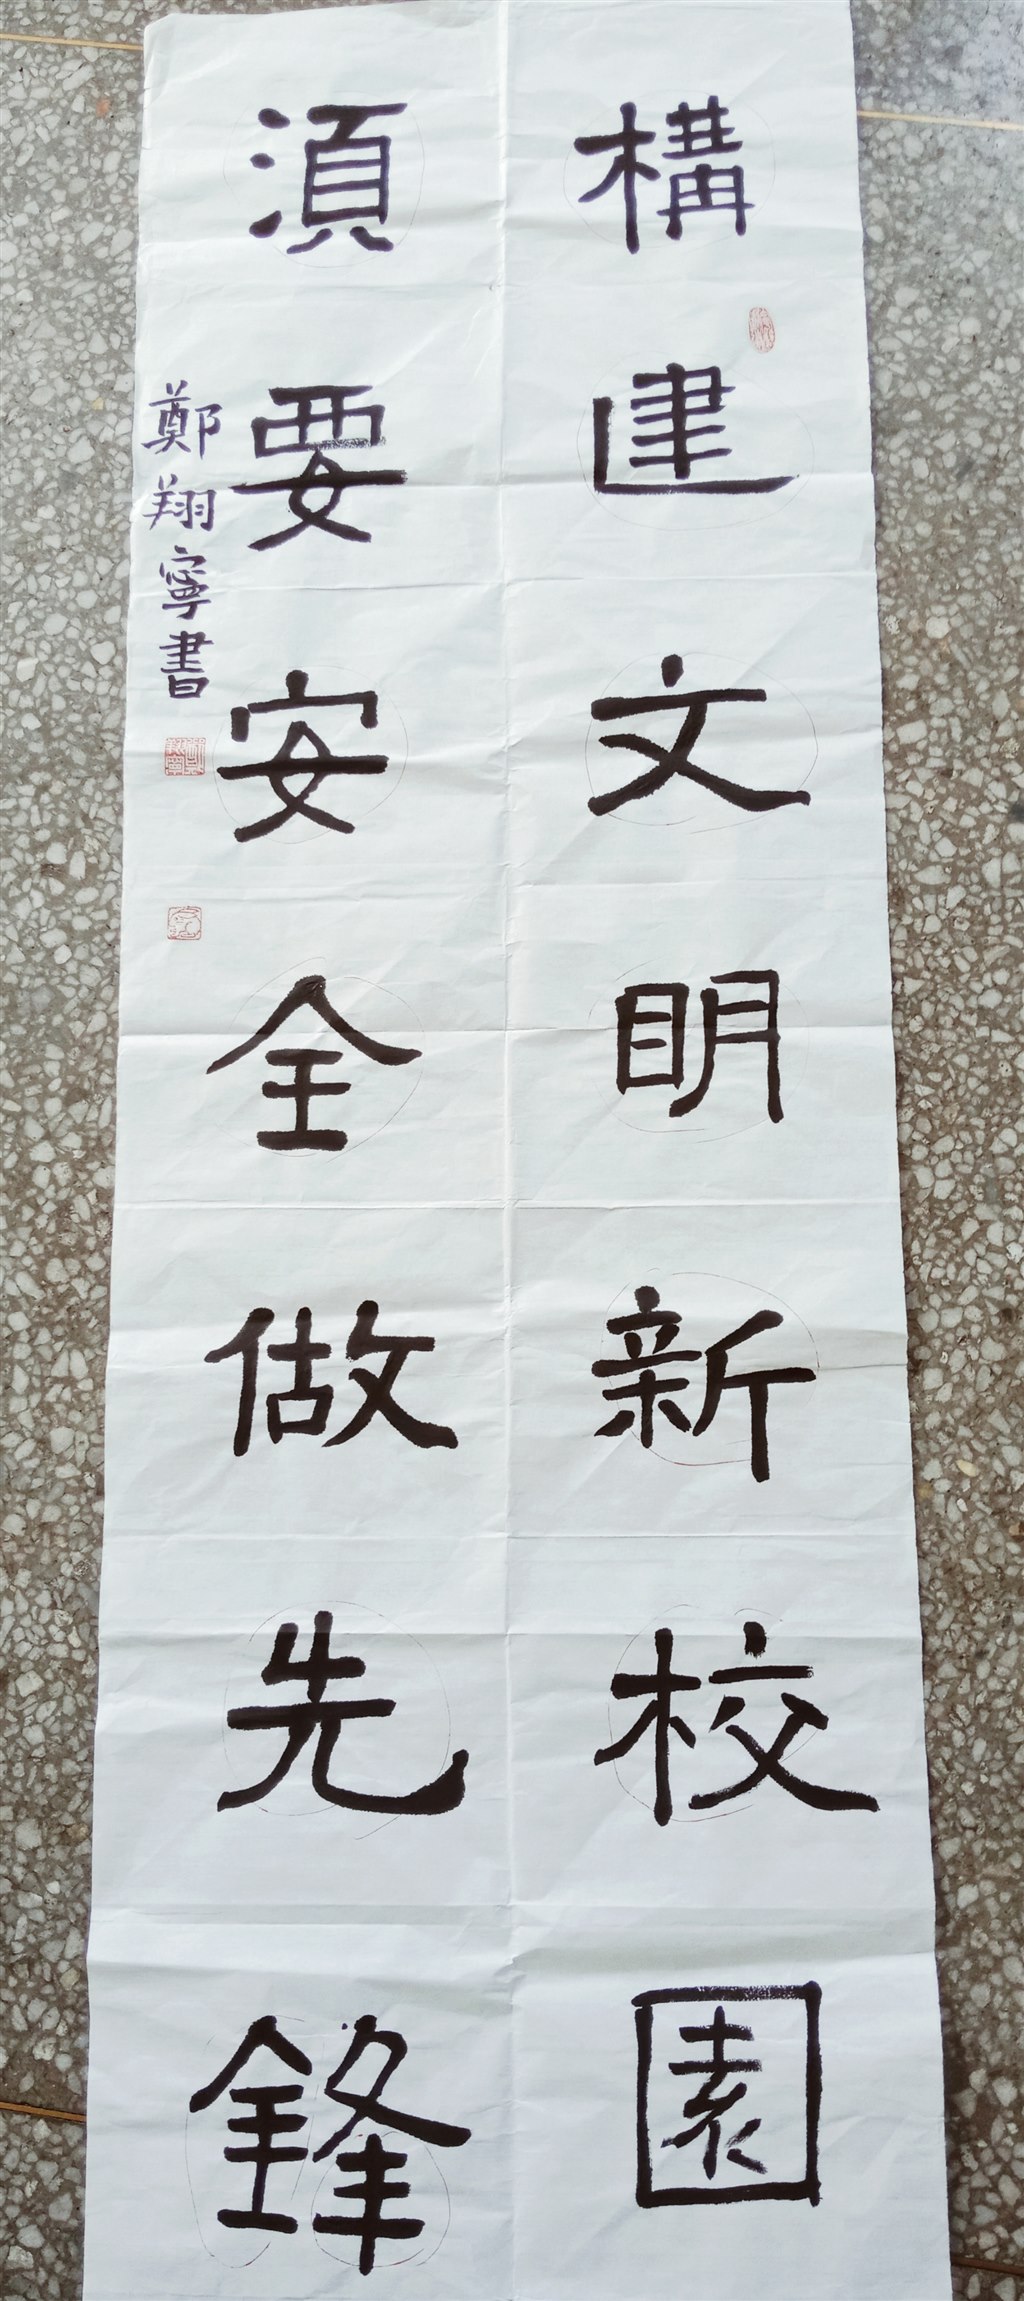 構建文明新校園
須要安全做先鋒
鄭翔寧書